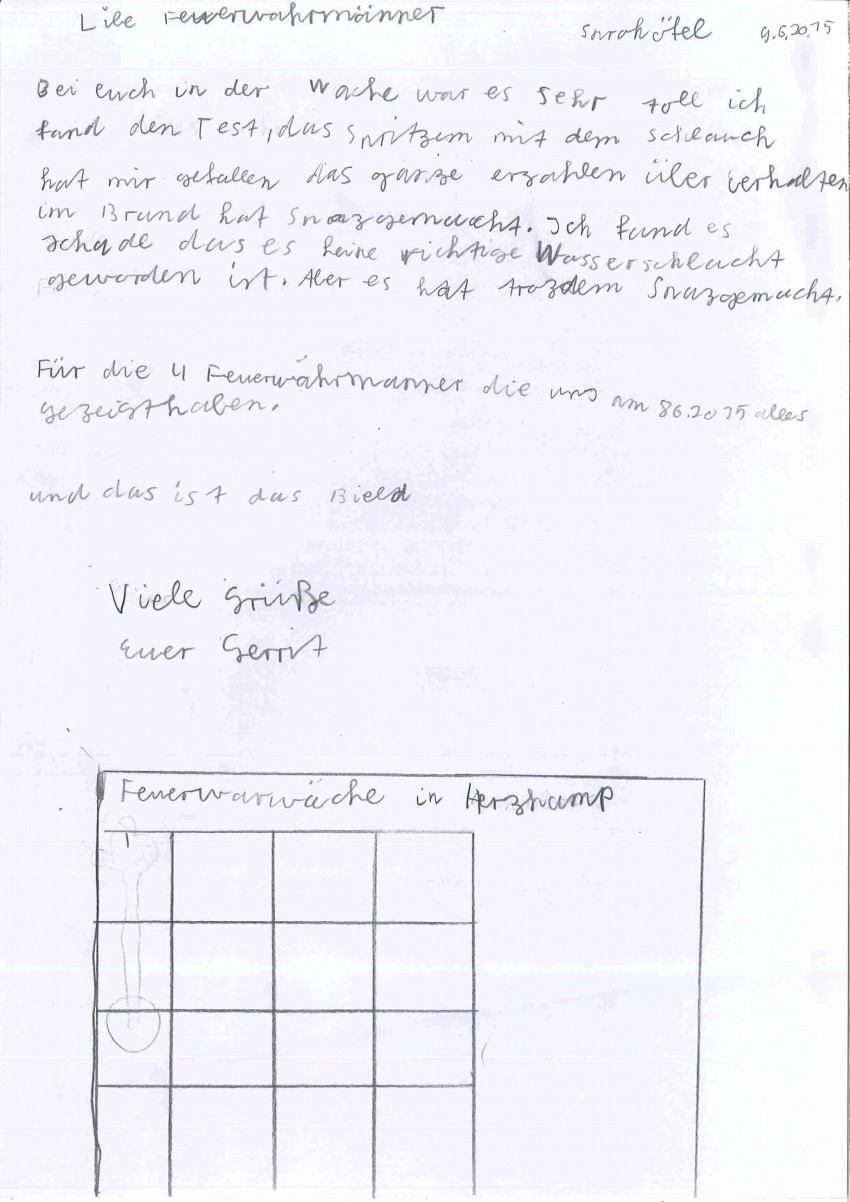 Libe Feuerwahrmänner
Sprokövel 9.6.2015
Bei euch in der Wache war es sehr toll ich
fand den Test, das Spritzem mit dem schlauch
hat mir gefallen das ganze erzahlen über verhalten
im Brand hat Spazgemacht. Ich fand es
schade das es keine richtige Wasserschlacht
geworden ist. Aber es hat trozdem Spazgemacht.
Für die 4 Feuerwahrmanner die uns am 8.6.2015 alles
gezeigthaben.
und das ist das Bield
Viele Grüße
Euer Gerrit
Feuerwarwache in Herzkamp